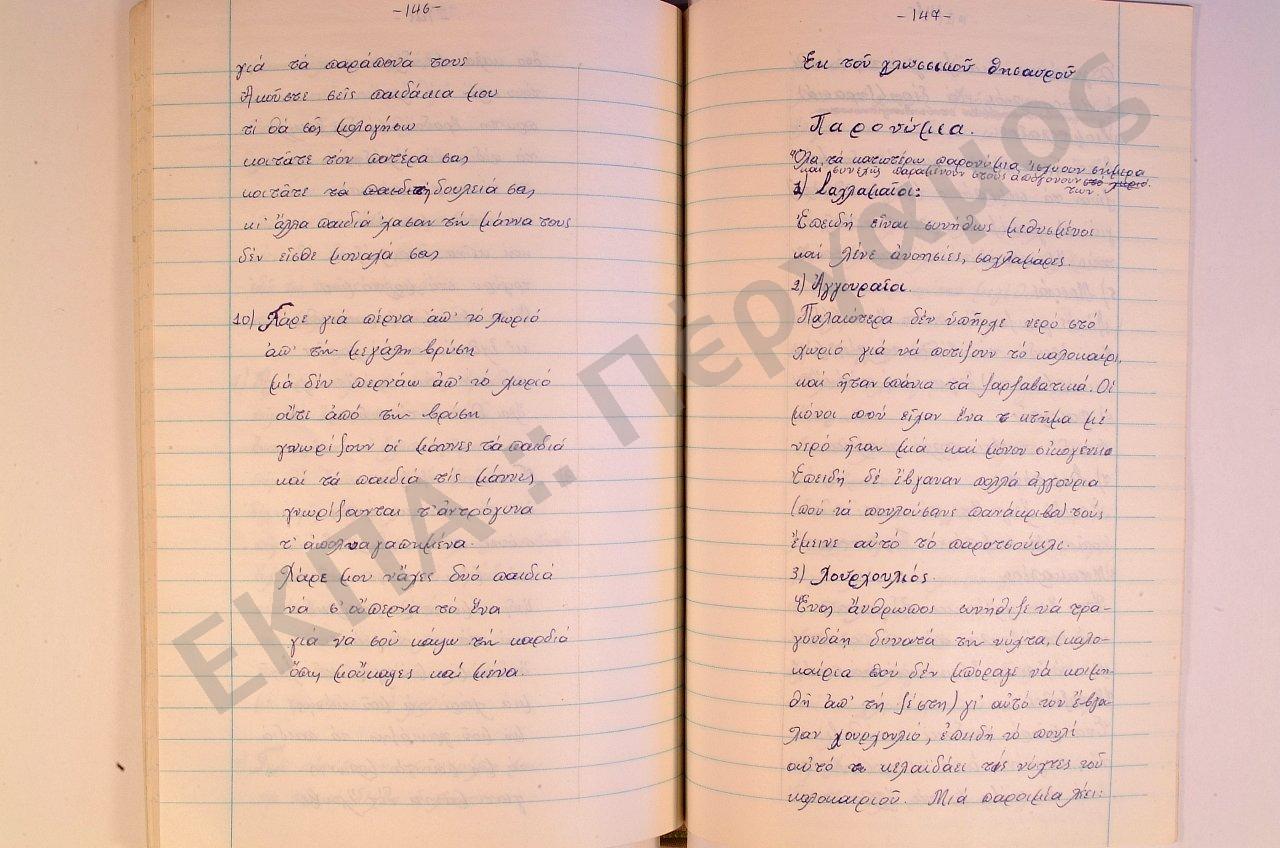 -146-
γιά τά παράπονά τους
Ἀκοῦστε σεῖς παιδάκια μου
τί θά σᾶς μολογήσω
κοιτᾶτε τόν πατέρα σας
κοιτᾶτε τή δουλειά σας
κι' ἄλλα παιδιά χάσαν τήν μάννα τους
δέν εἶσθε μοναχά σας
10) Χάρε γιά πέρνα ἀπ' τό χωριό
ἀπ' τήν μεγάλη βρύση
μά δέν περνάω ἀπ' τό χωριό
οὔτε ἀπό τήν βρύση
γνωρίζουν οἱ μάννες τά παιδιά
καί τά παιδιά τίς μάννες
γνωρίζονται τ' ἀντρόγυνα
τ' ἀπολναγαπημένα.
Χάρε μου νἄχες δυό παιδιά
νά σ' οὔπερνα τό ἕνα
γιά νά σοῦ κάψω τή καρδιά
ὅπως μοὔκαψες καί μένα.
-147-
Ἐκ τοῦ γλωσσικοῦ θησαυροῦ
Παρονύμια.
Ὅλα τά κατωτέρω παρονύμια ἰσχύουν σήμερα
καί συνεχῶς παραμένουν στούς ἀπογόνους στό χωριό.
των
1) Σαχλαμαῖοι:
Ἐπειδή εἶναι συνήθως μεθυσμένοι
καί λένε ἀνοησίες, σαχλαμάρες.
2) Ἀγγουραῖοι.
Παλαιότερα δέν ὑπῆρχε νερό στό
χωριό γιά νά ποτίζουν τό καλοκαίρι,
καί ἦταν σπάνια τά ζαρζαβατικά. Οἱ
μόνοι πού εἶχαν ἕνα κτῆμα μέ
νερό ἦταν μιά καί μόνον οἰκογένεια
Ἐπειδή δέ ἔβγαναν πολλά ἀγγούρια
(πού τά πουλούσανε πανάκριβα) τούς
ἔμεινε αὐτό τό παρατσούκλι.
3) Χουρχουλιός.
Ἕνας ἄνθρωπος συνήθιζε νά τρα-
γουδάη δυνατά τήν νύχτα, (καλο-
καίρια πού δέν μπόραγε νά κοιμη-
θῆ ἀπ' τή ζέστη) γι' αὐτό τόν ἔβγα-
λαν χουρχουλιό, ἐπειδή τό πουλί
αὐτό κελαϊδάει τίς νύχτες τοῦ
καλοκαιριοῦ. Μιά παροιμία λέει:
ΕΚΠΑ :: Πέργαμος